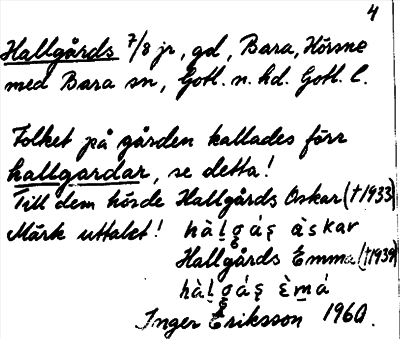 4
Hallgårds 7/8 jr, gd, Bara, Hörsne
med Bara sn, Gotl. n. hd. Gotl. l.
Folket på gården kallades förr
hallgardar, se detta!
Till dem hörde Hallgårds Oskar (†1933)
Märk uttalet! hàl̥gáș àskar
Hallgårds Emma (†1939)
hàl̥gáș èmá
Inger Eriksson 1960.